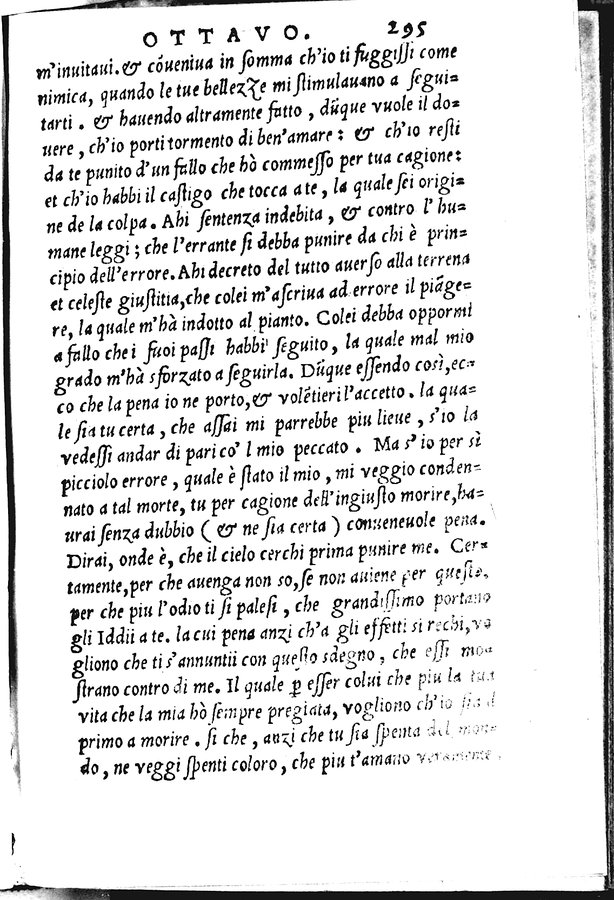 OTTAVO. 295
m'inuitaui. & cõueniua in somma ch'io ti fuggissi come
nimica, quando le tue bellezze mi stimulauano a segui=
tarti. & hauendo altramente fatto, dũque vuole il do=
uere, ch'io porti tormento di ben'amare: & ch'io resti
da te punito d'un fallo che hò commesso per tua cagione:
et ch'io habbi il castigo che tocca a te, la quale sei origi=
ne de la colpa. Ahi sentenza indebita, & contro l'hu=
mane leggi; che l'errante si debba punire da chi è prin=
cipio dell'errore. Ahi decreto del tutto auerso alla terrena
et celeste giustitia, che colei m'ascriua ad errore il piãge=
re, la quale m'hà indotto al pianto. Colei debba oppormi
a fallo che i suoi passi habbi seguito, la quale mal mio
grado m'hà sforzato a seguirla. Dũque essendo così, ec=
co che la pena io ne porto, & volẽtieri l'accetto. la qua=
le sia tu certa, che assai mi parrebbe piu lieue, s'io la
vedessi andar di pari co' l mio peccato. Ma s'io per sì
picciolo errore, quale è stato il mio, mi veggio conden=
nato a tal morte, tu per cagione dell'ingiusto morire, ha=
urai senza dubbio (& ne sia certa) conueneuole pena.
Dirai, onde è, che il cielo cerchi prima punire me. Cer=
tamente, per che auenga non so, se non auiene per questo,
per che piu l'odio ti si palesi, che grandissimo portano
gli Iddii a te. la cui pena anzi ch'a gli effetti si rechi, vo
gliono che ti s'annuntii con questo sdegno, che essi mo
strano contro di me. Il quale ꝑ esser colui che piu la tua
vita che la mia hò sempre pregiata, vogliono ch'io sia il
primo a morire. si che, anzi che tu sia spenta del mon=
do, ne veggi spenti coloro, che piu t'amano veramente.